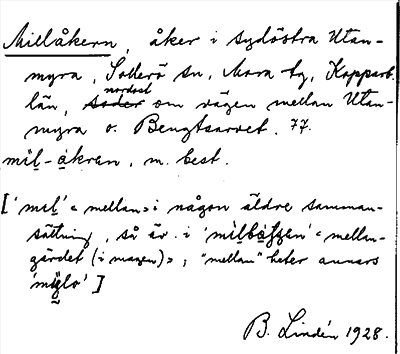 Millåkern, åker i sydöstra Utan-
myra, Sollerö sn, Mora tg, Kopparb.
nordost
län, söder om vägen mellan Utan-
myra o. Bengtsarvet. 77.
mil-åkran, m. best.
['mil' < mellan > i någon äldre samman-
sättning, så är i 'milbåſgen' < mellan-
gärdet (i magen) >; "mellan" heter annars
B. Lindén 1928.